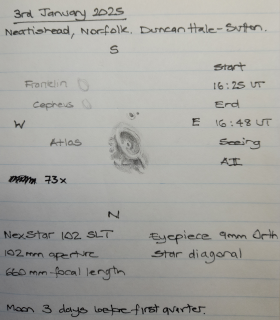 3rd January 2025
Neatishead, Norfolk. Duncan Hale-Sutton.
S
Start
Franklin 16:25 UT
Cepheus End
W E 16:48 UT
Atlas Seeing
AII
73x
N
NexStar 102 SLT Eyepiece 9mm Orth
102mm aperture Star diagonal
660mm focal length
Moon 3 days before first quarter.